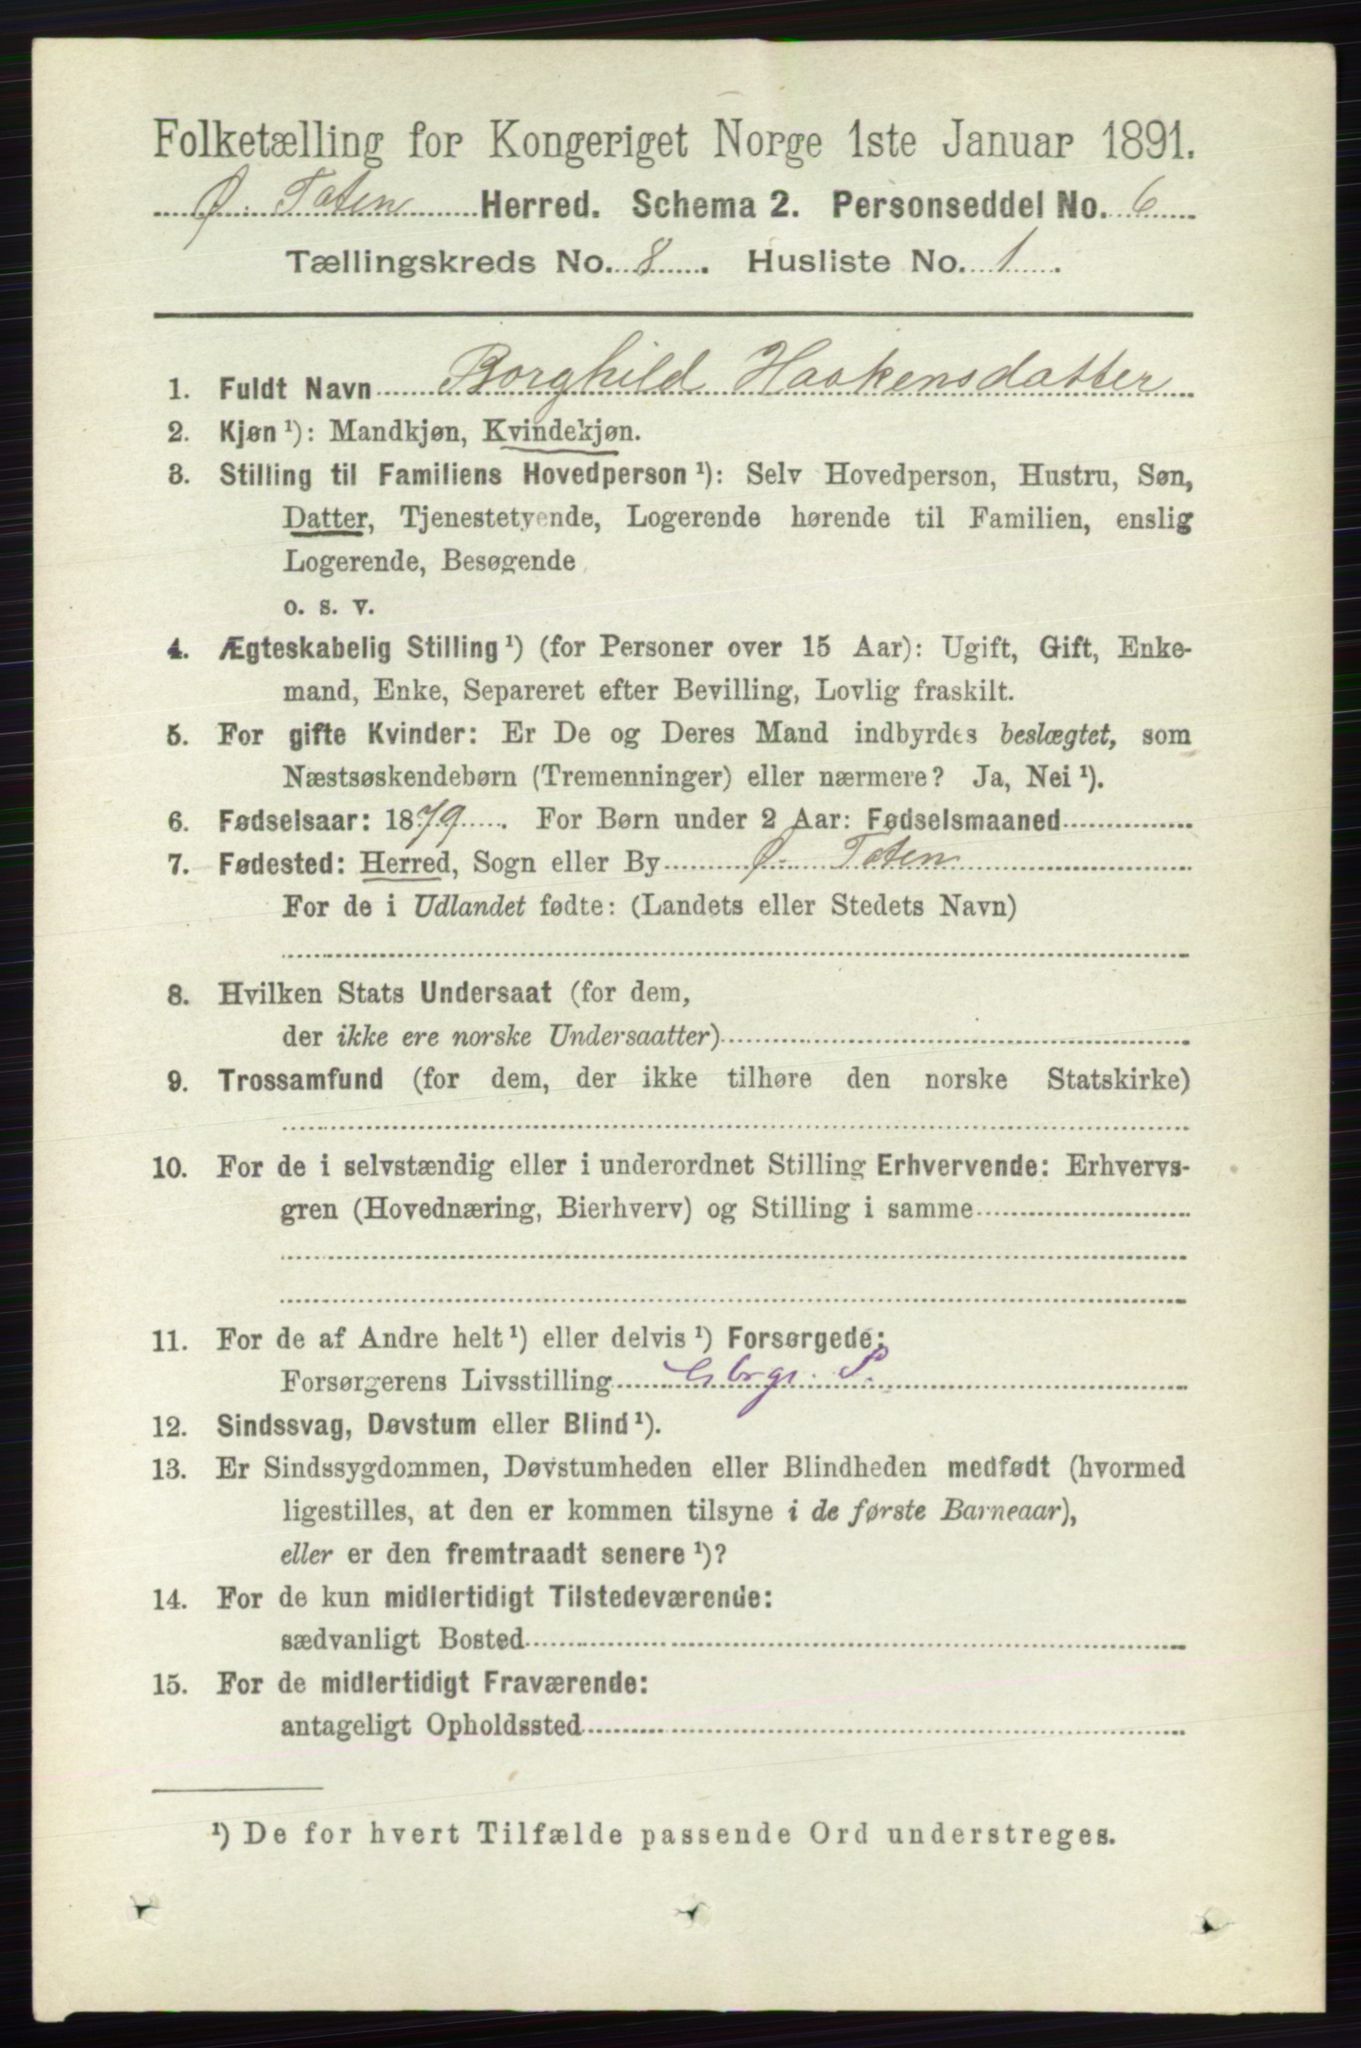 Folketælling for Kongeriget Norge 1ste Januar 1891.
Ø. Toten Herred. Schema 2. Personseddel No. 6
Tællingskreds No. 8. Husliste No. 1.
1. Fuldt Navn Borghild Haakensdatter
2. Kjøn ¹): Mandkjøn, Kvindekjøn.
3. Stilling til Familiens Hovedperson ¹): Selv Hovedperson, Hustru, Søn,
Datter, Tjenestetyende, Logerende hørende til Familien, enslig
Logerende, Besøgende
o. s. v.
4. Ægteskabelig Stilling ¹) (for Personer over 15 Aar): Ugift, Gift, Enke-
mand, Enke, Separeret efter Bevilling, Lovlig fraskilt.
5. For gifte Kvinder: Er De og Deres Mand indbyrdes beslægtet, som
Næstsøskendebørn (Tremenninger) eller nærmere? Ja, Nei ¹).
6. Fødselsaar: 1879. For Børn under 2 Aar: Fødselsmaaned
7. Fødested: Herred, Sogn eller By Ø. Toten
For de i Udlandet fødte: (Landets eller Stedets Navn)
8. Hvilken Stats Undersaat (for dem,
der ikke ere norske Undersaatter)
9. Trossamfund (for dem, der ikke tilhøre den norske Statskirke)
10. For de i selvstændig eller i underordnet Stilling Erhvervende: Erhvervs-
gren (Hovednæring, Bierhverv) og Stilling i samme
11. For de af Andre helt ¹) eller delvis ¹) Forsørgede:
Forsørgerens Livsstilling
12. Sindssvag, Døvstum eller Blind ¹).
13. Er Sindssygdommen, Døvstumheden eller Blindheden medfødt (hvormed
ligestilles, at den er kommen tilsyne i de første Barneaar),
eller er den fremtraadt senere ¹)?
14. For de kun midlertidigt Tilstedeværende:
sædvanligt Bosted
15. For de midlertidigt Fraværende:
antageligt Opholdssted
¹) De for hvert Tilfælde passende Ord understreges.